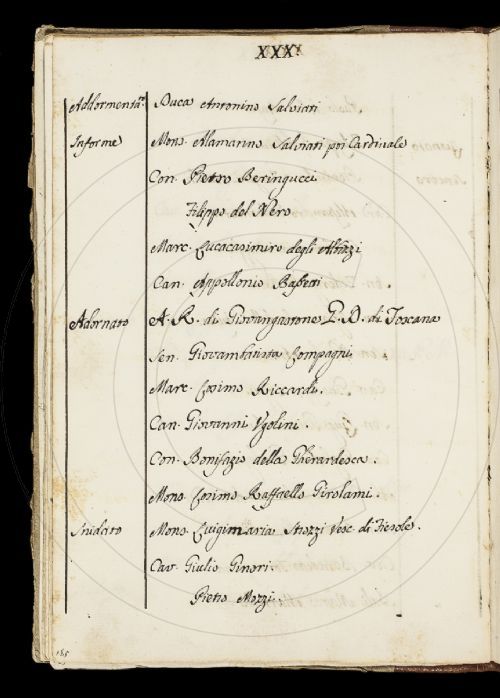 XXXI
Addormenta.to Duca Antonino Salviati.
Informe Mons. Alamanno Salviati poi Cardinale
Con. Pietro Beringucci
Filippo del Nero
Marc. Lucacasimiro degli Albizzi
Can. Appollonio Bassetti
Adornato A. R. di Giovangastone P. D. di Toscana
Sen. Giovambatista Compagni
Marc. Cosimo Riccardi.
Can. Giovanni Ugolini.
Con. Bonifazio della Gherardesca.
Mons. Cosimo Raffaello Girolami.
Mons. Luigimaria Strozzi Vesc. di Fiesole.
Cav. Giulio Ginori.
Pietro Mozzi.
185